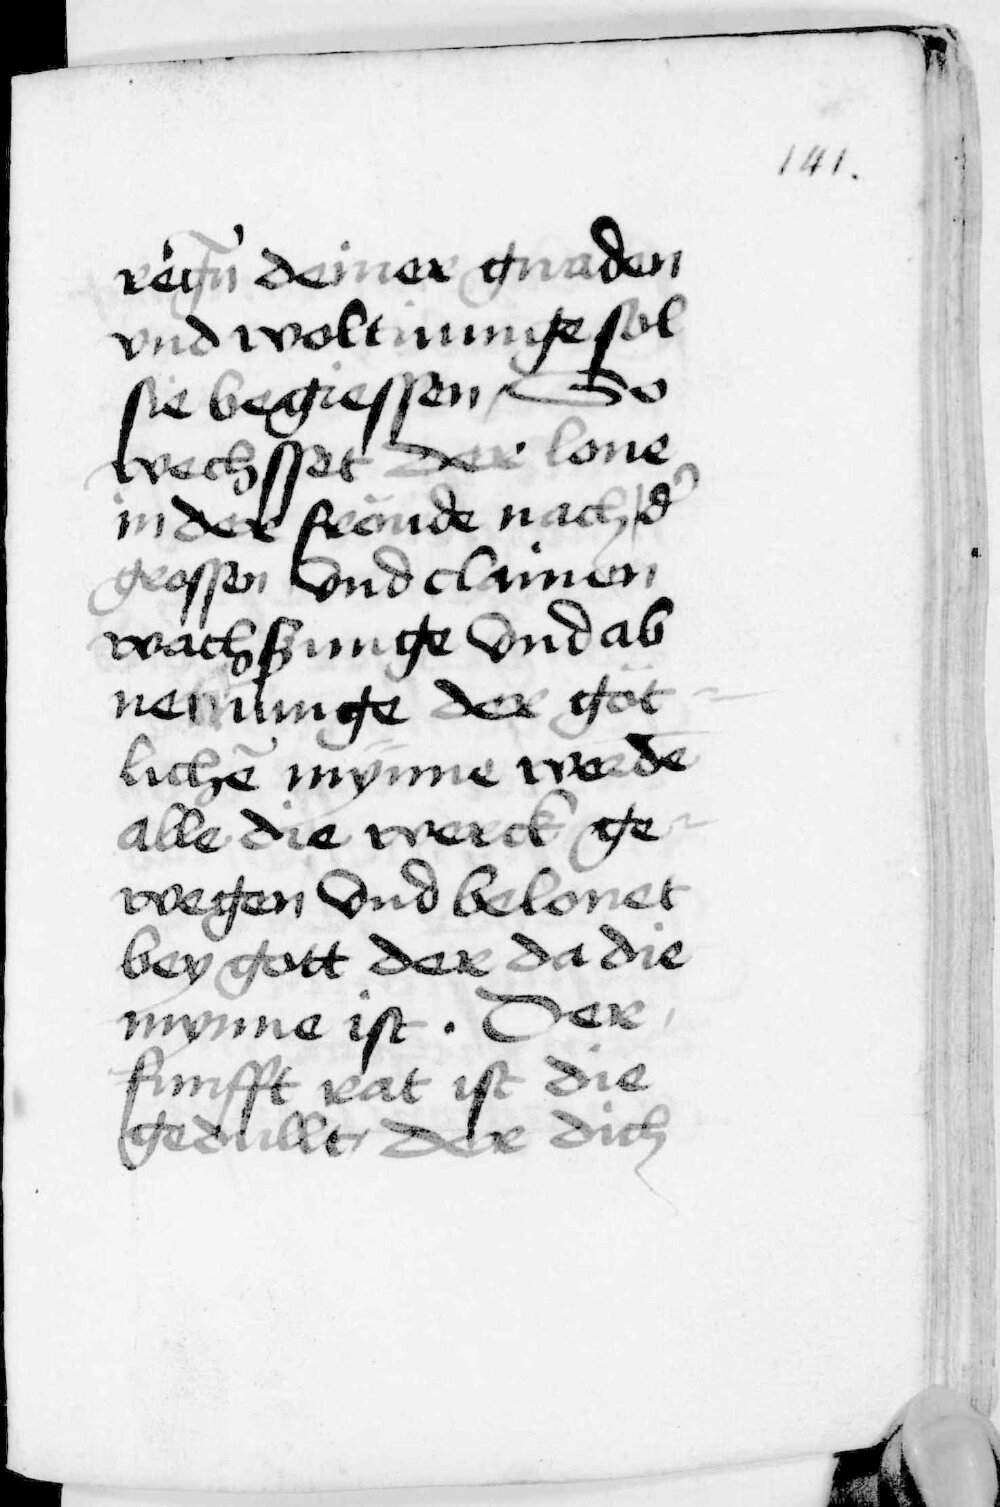 141.
regn̄ deiner gnaden
vnd woltuunge sol
sie begiessen So
wechsset der lone
in der freüde nach d'
grossen vnd clainen
wachssunge vnd ab
nemunge der göt-
lichē mÿnne werdē
alle die werck ge-
wegen vnd belonet
bey gott der da die
mynne ist . Der
funfft rat ist die
gedullt der dich